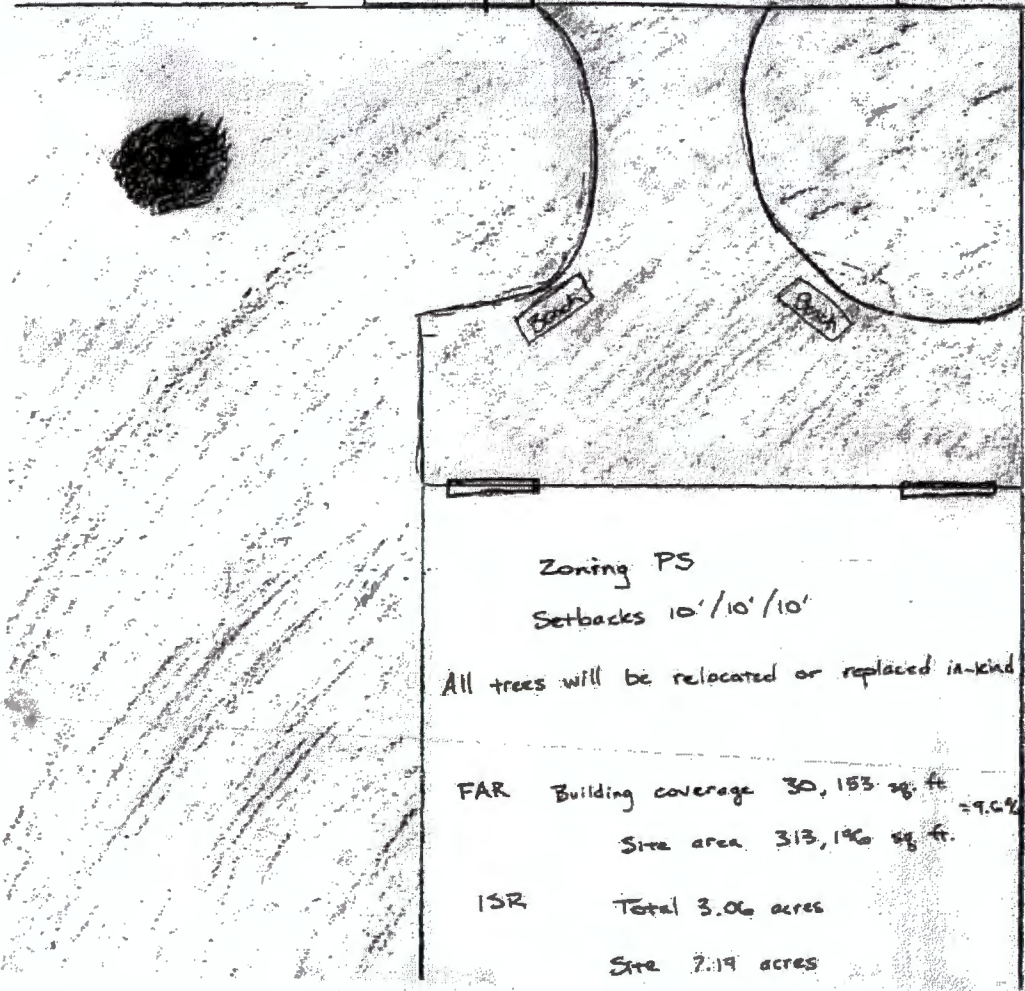 Bench
Bench
Zoning PS
Setbacks 10'/10'/10'
All trees will be relocated or replaced in-kind
FAR Building coverage 30,153 sq. ft
=9.6%
Site area 313,196 sq ft.
ISR Total 3.06 acres
Site 7.19 acres